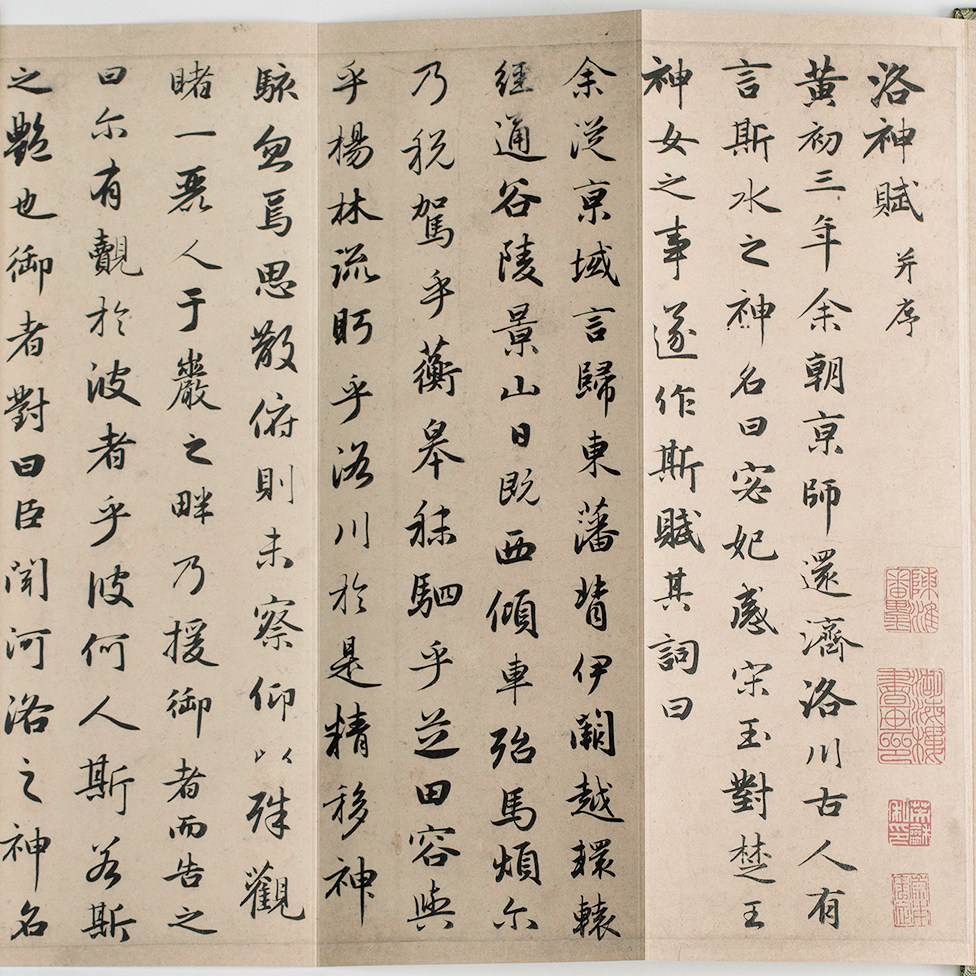 洛神賦并序
黃初三年余朝京師還濟洛川古人有
言斯水之神名曰宓妃感宋玉對楚王
神女之事遂作斯賦其詞曰
余從京域言歸東藩背伊闕越轘轅
經通谷陵景山日既西傾車殆馬煩尓
乃税駕乎蘅皋秣駟乎芝田容與
乎楊林流眄乎洛川於是精移神
駭忽焉思散俯則未察仰以殊觀
睹一麗人于巖之畔乃援御者而告之
曰尓有覿於彼者乎彼何人斯若斯
之艷也御者對曰臣聞河洛之神名